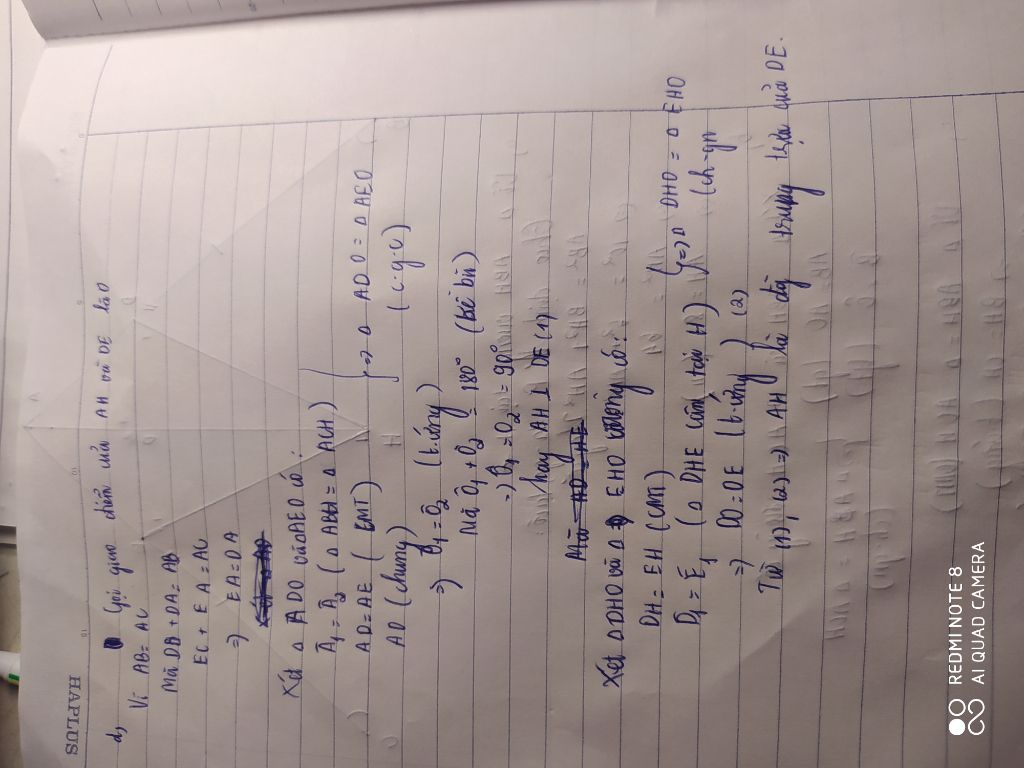 HAPLUS
d) Gọi giao điểm của AH và DE là O
Vì AB = AC
Mà DB + DA = AB
EC + EA = AC
=> EA = DA
Xét Δ ADO và ΔAEO có:
Â1 = Â2 (Δ ABH = Δ ACH)
AD = AE (CMT)
AO (chung)
} => Δ ADO = Δ AEO
(c-g-c)
=> Ô1 = Ô2 (t.ứng)
Mà Ô1 + Ô2 = 180° (kề bù)
=> Ô1 = Ô2 = 90°
hay AH ⊥ DE (1)
Xét ΔDHO và Δ EHO có:
DH = EH (CMT)
D̂1 = Ê1 (Δ DHE cân tại H)
} => Δ DHO = Δ EHO
(ch-gn)
=> DO = OE (t.ứng) (2)
Từ (1), (2) => AH là đg trung trực của DE.
REDMI NOTE 8
AI QUAD CAMERA